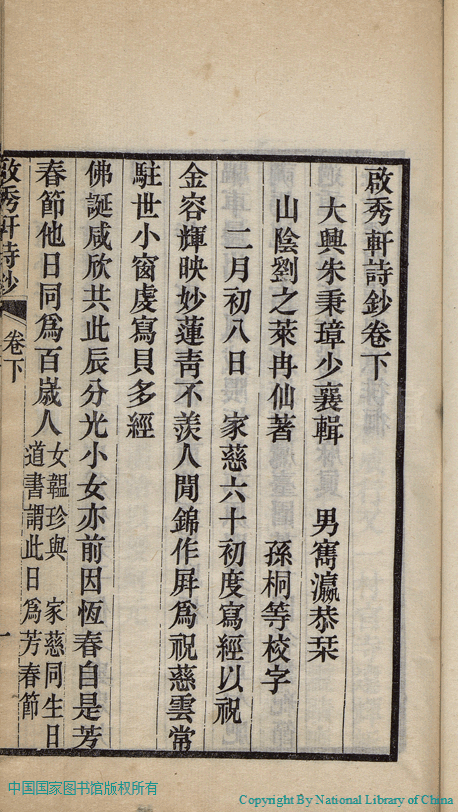 啟秀軒詩鈔卷下
大興朱秉璋少襄輯　男寯瀛恭栞
山陰劉之萊冉仙著　孫桐等校字
二月初八日　家慈六十初度寫經以祝
金容輝映妙蓮青不羨人閒錦作屏爲祝慈雲常
駐世小窗虔寫貝多經
佛誕咸欣共此辰分光小女亦前因恆春自是芳
春節他日同爲百歲人
女韞珍與　家慈同生日
道書謂此日爲芳春節
啟秀軒詩鈔
卷下
一
中国国家图书馆版权所有
Copyright By National Library of China